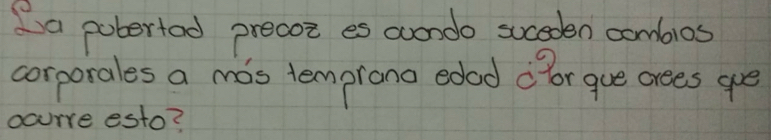 La pubertad precoz es cuando suceden cambios
corporales a más temprana edad ¿Por que crees que
ocurre esto?